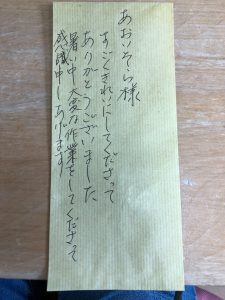 あおいそら様
すごくきれいにしてくださって
ありがとうございました
暑い中大変な作業をしてくださって
感謝申しあげます